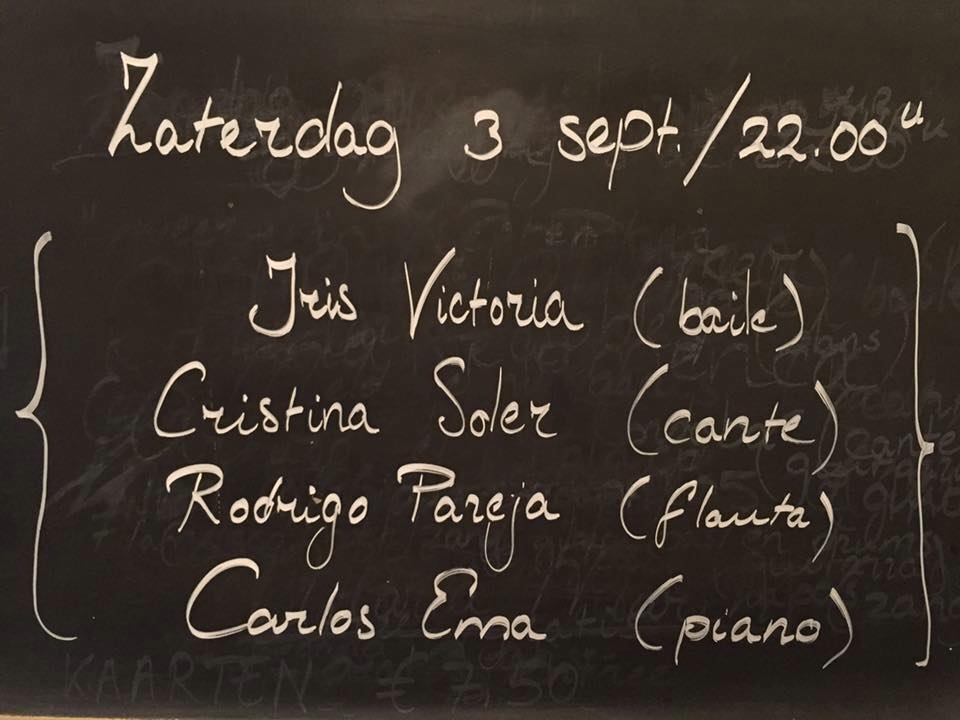 Zaterdag 3 sept. / 22.00u
Iris Victoria (baile)
Cristina Soler (cante)
Rodrigo Pareja (flauta)
Carlos Ema (piano)
KAARTEN € 7,50